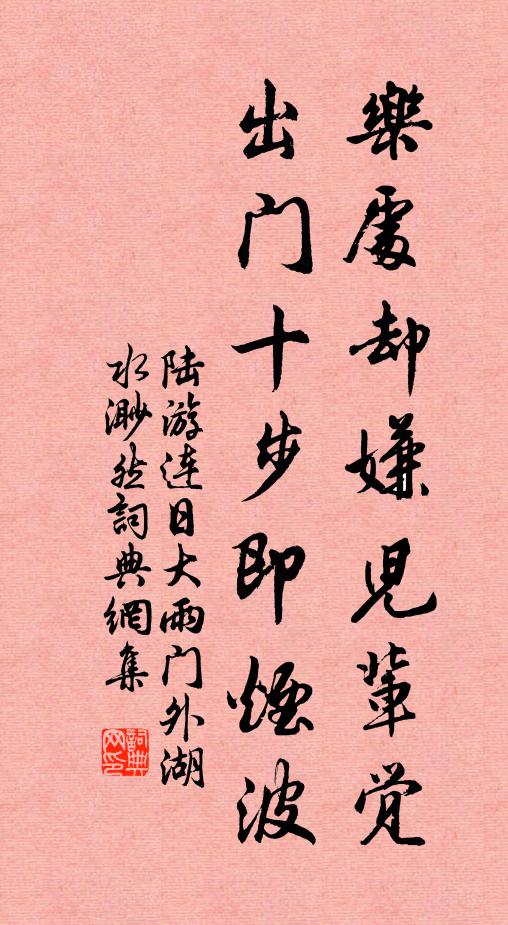 樂處却嫌児輩觉
出门十步即煙波
陆游连日大雨门外湖
水渺然詞典網集
詞典网印